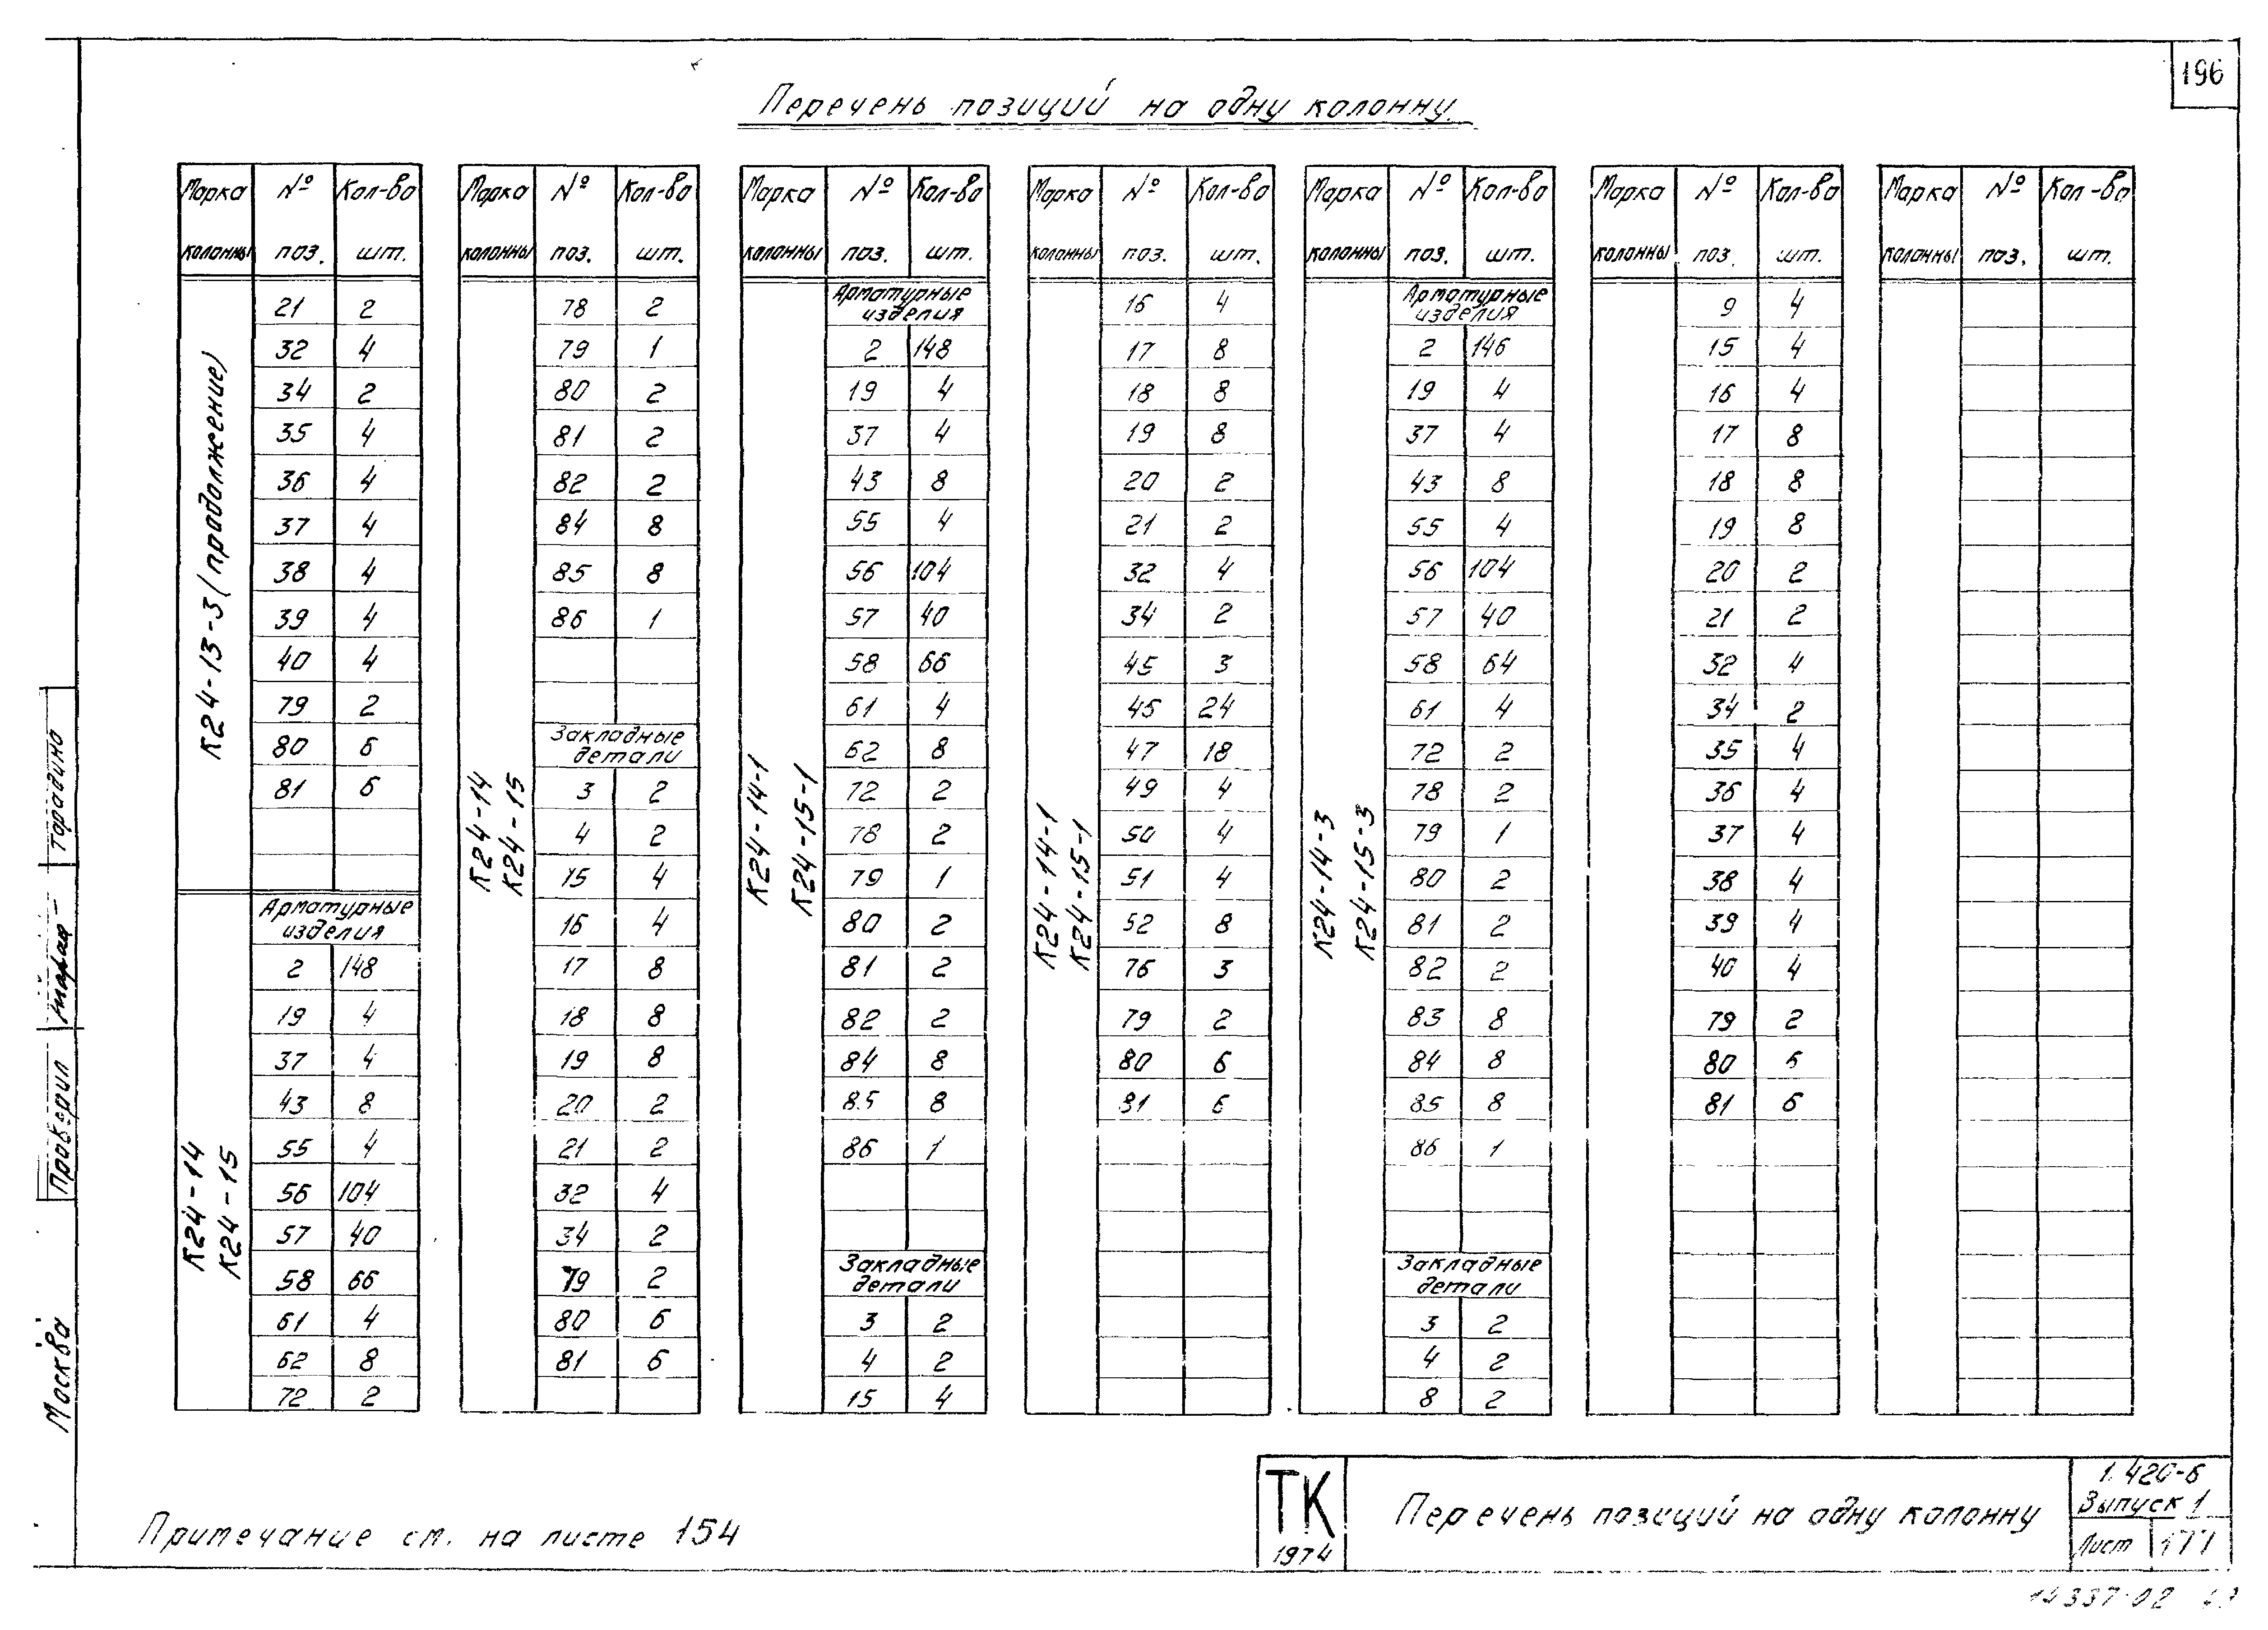 196
Перечень позиций на одну колонну.
Марка колонны № поз. Кол-во шт.
К24-13-3 (продолжение)
21 2
32 4
34 2
35 4
36 4
37 4
38 4
39 4
40 4
79 2
80 6
81 6
К24-14
К24-15
Арматурные изделия
2 148
19 4
37 4
43 8
55 4
56 104
57 40
58 66
61 4
62 8
72 2
Марка колонны № поз. Кол-во шт.
К24-14
К24-15
78 2
79 1
80 2
81 2
82 2
84 8
85 8
86 1
Закладные детали
3 2
4 2
15 4
16 4
17 8
18 8
19 8
20 2
21 2
32 4
34 2
79 2
80 6
81 6
Марка колонны № поз. Кол-во шт.
К24-14-1
К24-15-1
Арматурные изделия
2 148
19 4
37 4
43 8
55 4
56 104
57 40
58 66
61 4
62 8
72 2
78 2
79 1
80 2
81 2
82 2
84 8
85 8
86 1
Закладные детали
3 2
4 2
15 4
Марка колонны № поз. Кол-во шт.
К24-14-1
К24-15-1
16 4
17 8
18 8
19 8
20 2
21 2
32 4
34 2
45 3
45 24
47 18
49 4
50 4
51 4
52 8
76 3
79 2
80 6
81 6
Марка колонны № поз. Кол-во шт.
К24-14-3
К24-15-3
Арматурные изделия
2 146
19 4
37 4
43 8
55 4
56 104
57 40
58 64
61 4
72 2
78 2
79 1
80 2
81 2
82 2
83 8
84 8
85 8
86 1
Закладные детали
3 2
4 2
8 2
Марка колонны № поз. Кол-во шт.
9 4
15 4
16 4
17 8
18 8
19 8
20 2
21 2
32 4
34 2
35 4
36 4
37 4
38 4
39 4
40 4
79 2
80 6
81 6
Марка колонны № поз. Кол-во шт.
Проверил
Москва
Примечание см. на листе 154
ТК
1974
Перечень позиций на одну колонну
1.420-6
Выпуск 1
Лист 177
14337-02